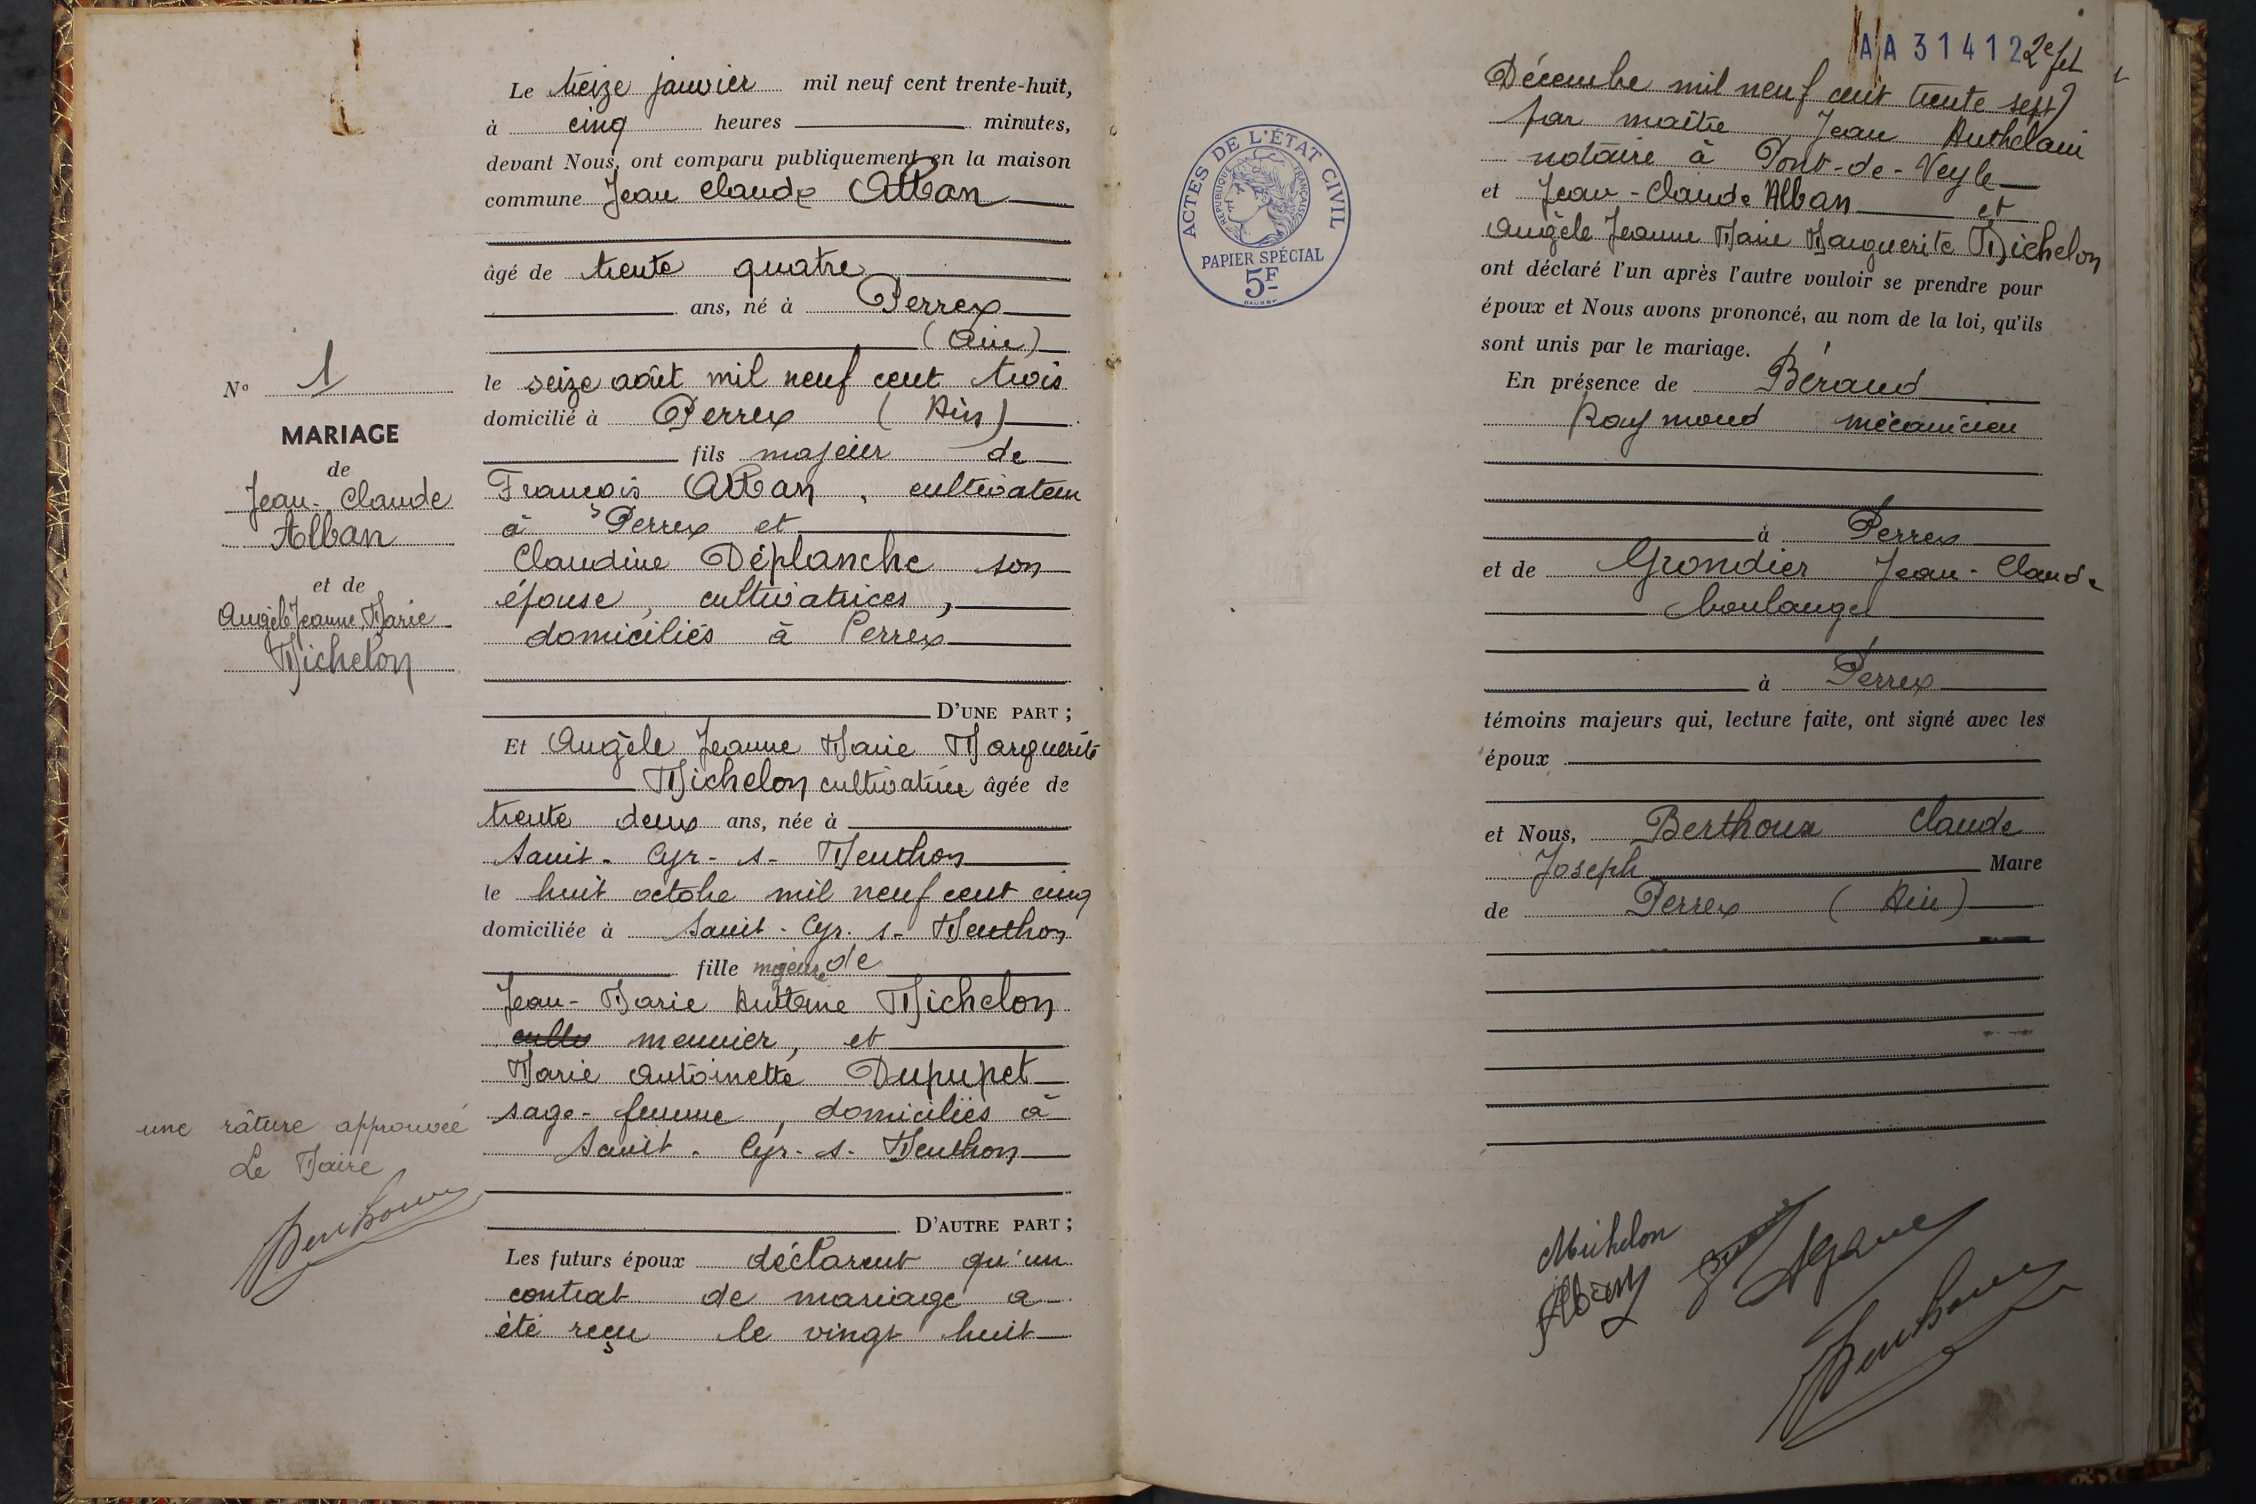 Le treize janvier mil neuf cent trente-huit,
à cinq heures minutes,
devant Nous, ont comparu publiquement en la maison
commune Jean Claude Alban
âgé de trente quatre
ans, né à Perrex
(Ain)
le seize août mil neuf cent trois
domicilié à Perrex (Ain)
fils majeur de
François Alban, cultivateur
à Perrex et
Claudine Déplanche son
épouse, cultivatrices,
domiciliés à Perrex
D'UNE PART ;
Et Angèle Jeanne Marie Marguerite
Michelon cultivatrice âgée de
trente deux ans, née à
Saint-Cyr-s-Menthon
le huit octobre mil neuf cent cinq
domiciliée à Saint-Cyr-s-Menthon
fille majeure de
Jean-Marie Antoine Michelon
meunier, et
Marie Antoinette Dupupet
sage-femme, domiciliés à
Saint-Cyr-s-Menthon
D'AUTRE PART ;
Les futurs époux déclarent qu'un
contrat de mariage a
été reçu le vingt huit
N° 1
MARIAGE
de
Jean-Claude
Alban
et de
Angèle Jeanne Marie
Michelon
une râture approuvée
Le Maire
Berthoux
AA 31412 2e ft
Décembre mil neuf cent trente sept
par maître Jean
notaire à Pont-de-Veyle
et Jean-Claude Alban et
Angèle Jeanne Marie Marguerite Michelon
ont déclaré l'un après l'autre vouloir se prendre pour
époux et Nous avons prononcé, au nom de la loi, qu'ils
sont unis par le mariage.
En présence de Béraud
Raymond mécanicien
à Perrex
et de Grondier Jean-Claude
boulanger
à Perrex
témoins majeurs qui, lecture faite, ont signé avec les
époux
et Nous, Berthoux Claude
Joseph Maire
de Perrex (Ain)
Michelon
Alban
Berthoux
ACTES DE L'ÉTAT CIVIL
RÉPUBLIQUE FRANÇAISE
PAPIER SPÉCIAL
5F